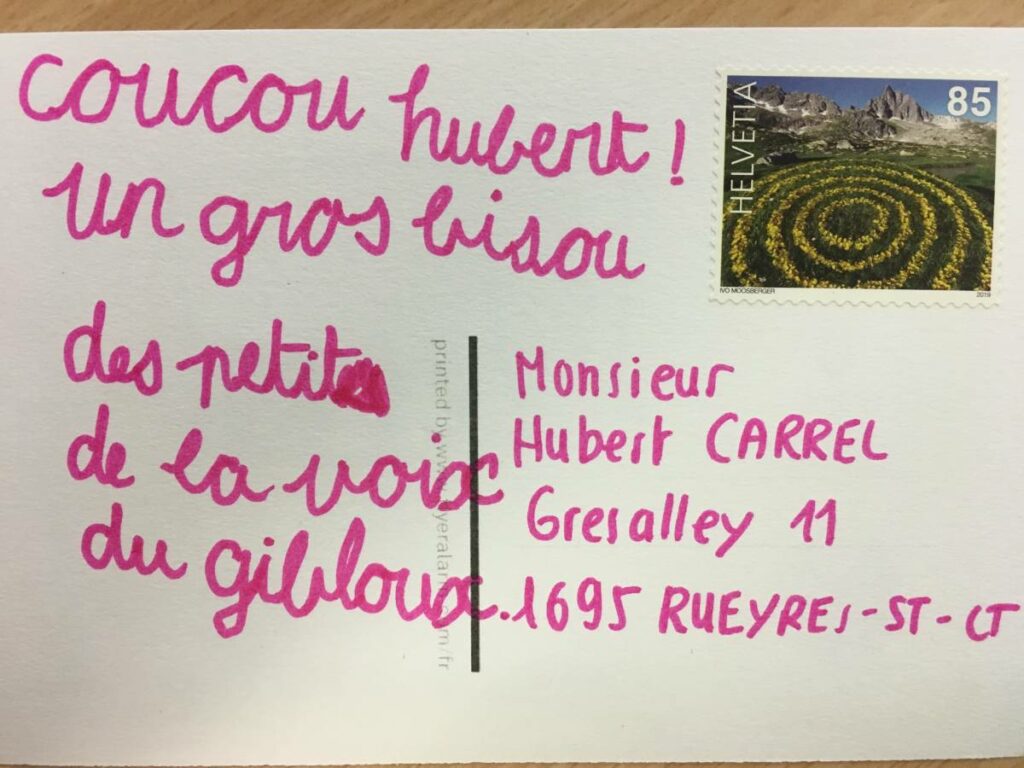 coucou hubert !
un gros bisou
des petits
de la voix
du gibloux.
HELVETIA
85
IVO MOOSBERGER
2019
Monsieur
Hubert CARREL
Gresalley 11
1695 RUEYRES-ST-CT
printed by www.